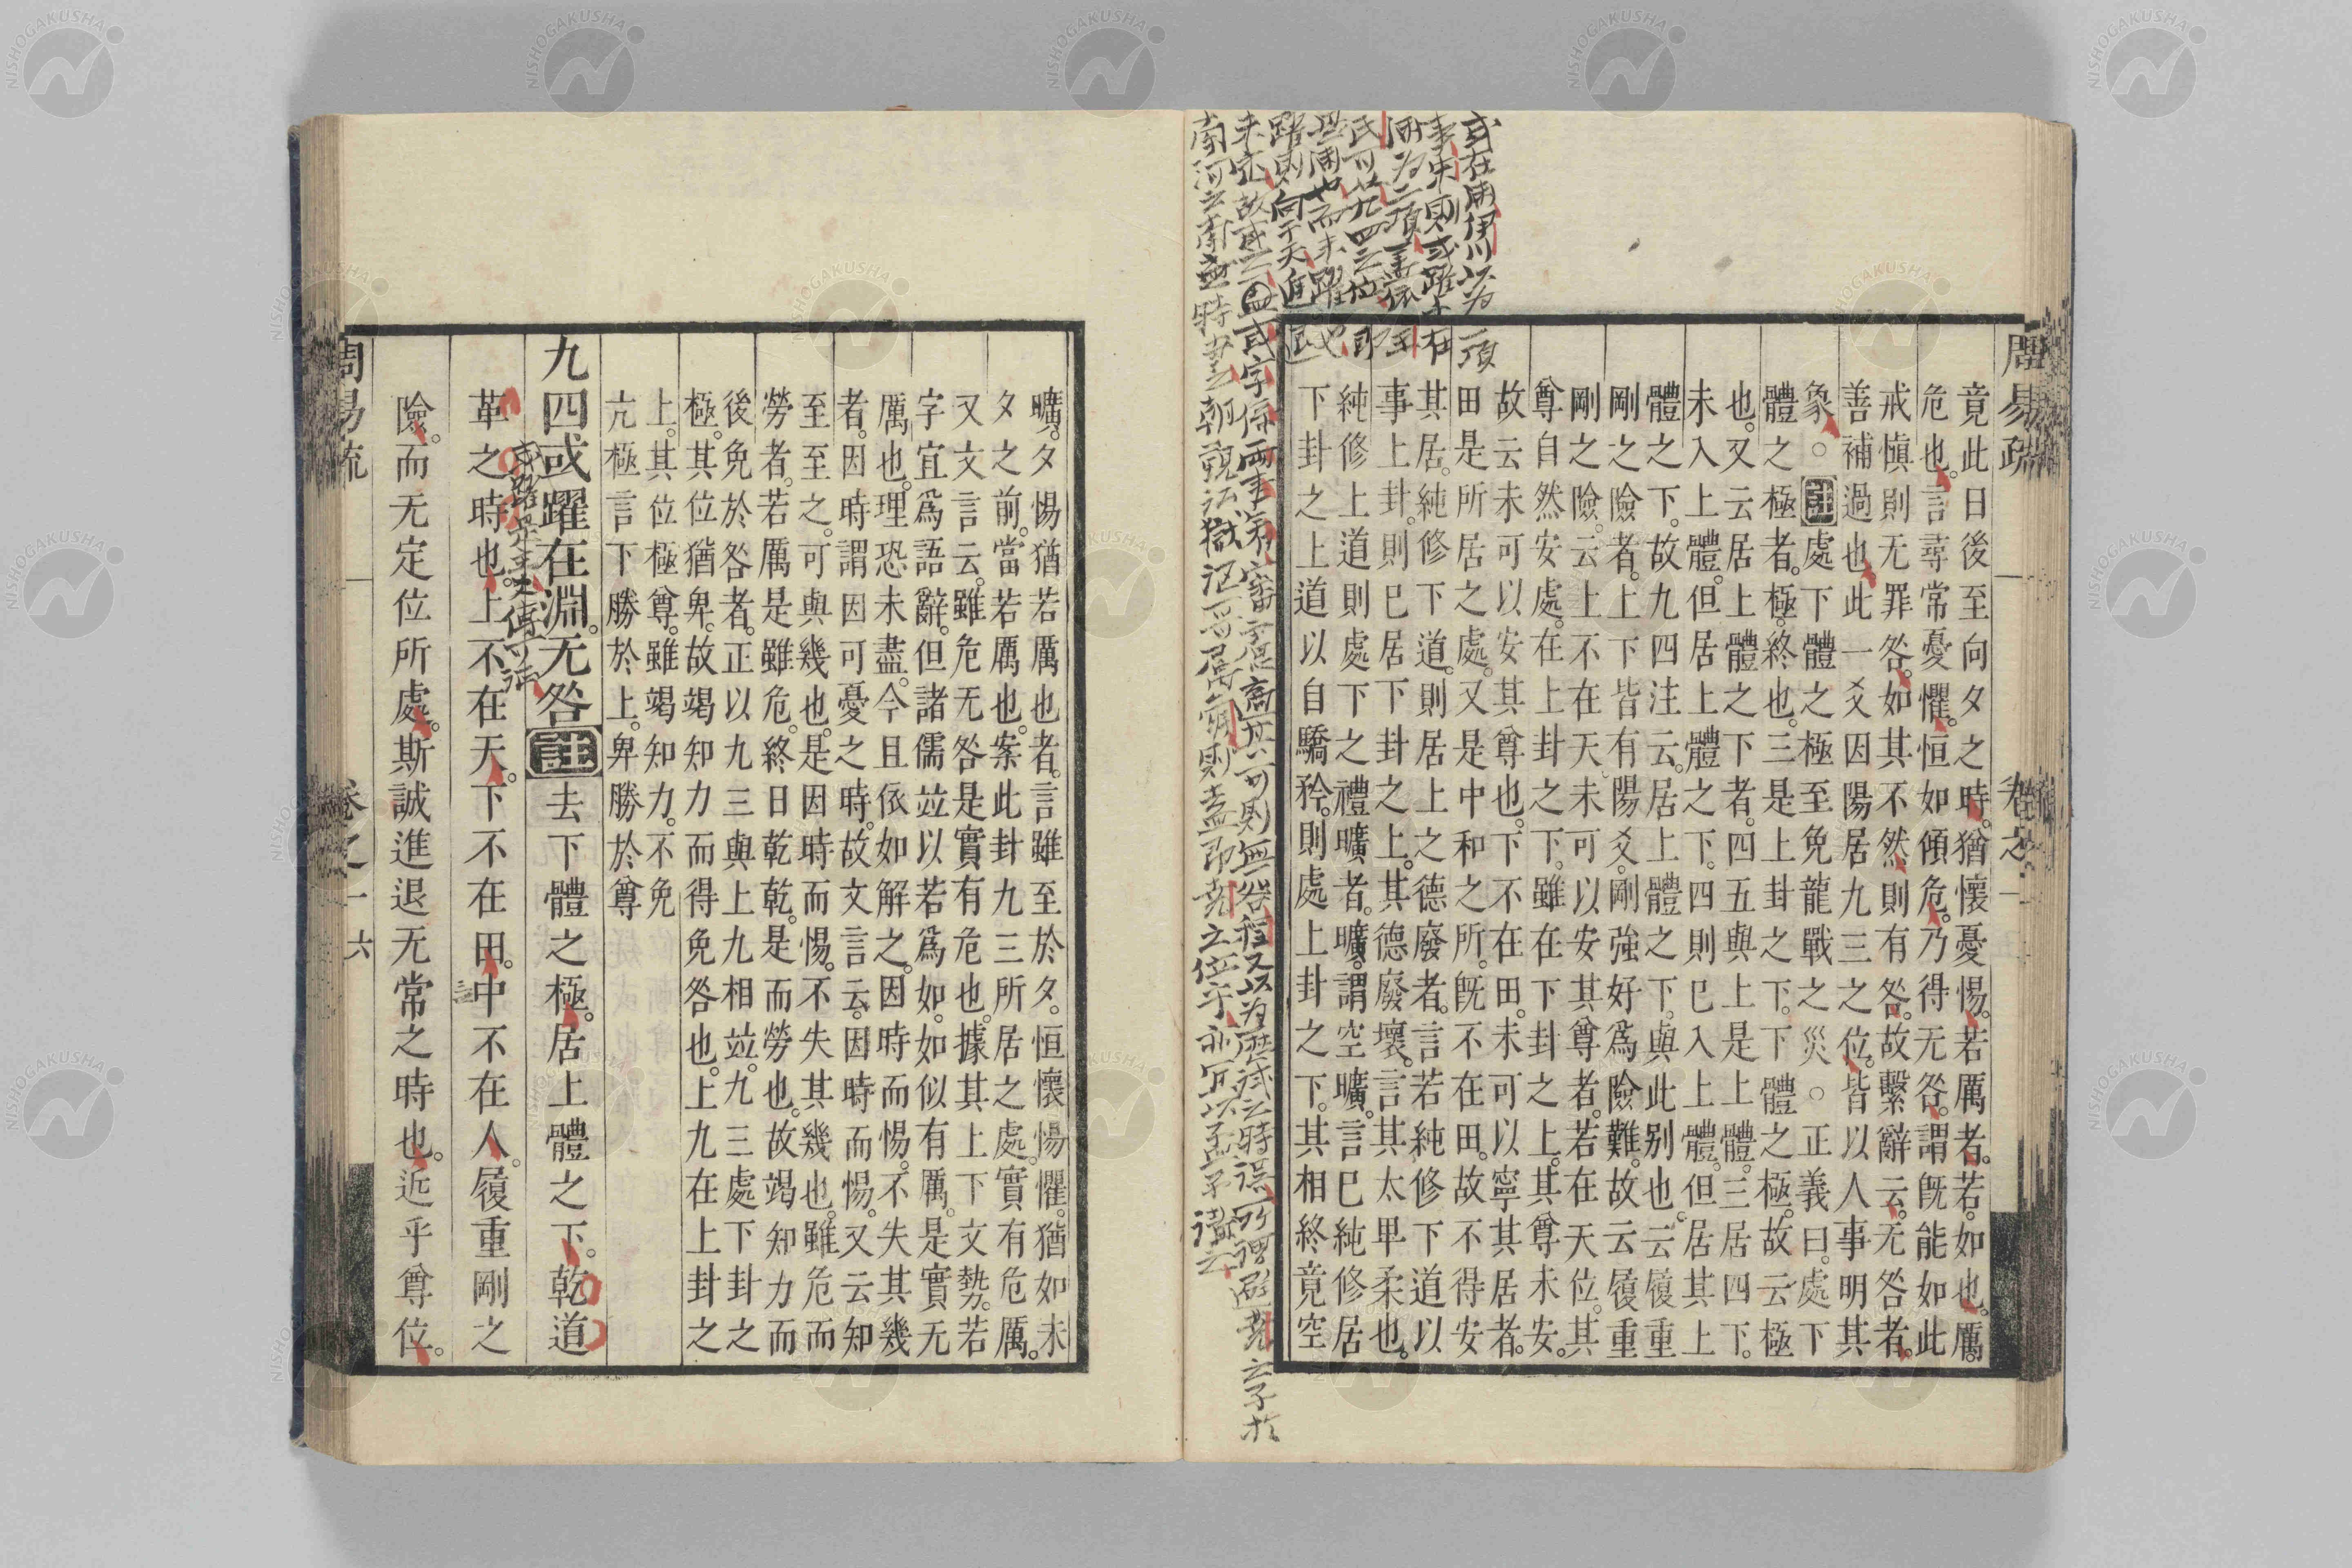 周易疏 卷之一
竟此日後至向夕之時。猶懷憂惕。若厲者。若。如也。厲。
危也。言尋常憂懼。恒如傾危。乃得无咎。謂旣能如此
戒愼則无罪咎。如其不然則有咎。故繫辭云。无咎者。
善補過也。此一爻因陽居九三之位。皆以人事明其
象。○註處下體之極至免龍戰之災○正義曰。處下
體之極者。極。終也。三是上卦之下。下體之極。故云極
也。又云居上體之下者。四五與上是上體。三居四下。
未入上體。但居上體之下。四則已入上體。但居其上
體之下。故九四注云。居上體之下。與此別也。云履重
剛之險者。上下皆有陽爻。剛強好爲險難。故云履重
剛之險。云上不在天。未可以安其尊者。若在天位。其
尊自然安處。在上卦之下。雖在下卦之上。其尊未安。
故云未可以安其尊也。下不在田。未可以寧其居者。
田是所居之處。又是中和之所。旣不在田。故不得安
其居。純修下道。則居上之德廢者。言若純修下道以
事上卦。則已居下卦之上。其德廢壞。言其太卑柔也。
純修上道則處下之禮曠者。曠。謂空曠。言已純修居
下卦之上道以自驕矜。則處上卦之下。其相終竟空
或在淵伊川以为一項
曠。夕惕猶若厲也者。言雖至於夕。恒懷惕懼。猶如未
夕之前。當若厲也。案此卦九三所居之處。實有危厲。
又文言云。雖危无咎。是實有危也。據其上下文勢。若
字宜爲語辭。但諸儒竝以若爲如。如似有厲。是實无
厲也。理恐未盡。今且依如解之。因時而惕。不失其幾
者。因時謂因可憂之時。故文言云。因時而惕。又云知
至至之。可與幾也。是因時而惕。不失其幾也。雖危而
勞者。若厲是雖危。終日乾乾。是而勞也。故竭知力而
後免於咎者。正以九三與上九相竝。九三處下卦之
極。其位猶卑。故竭知力而得免咎也。上九在上卦之
上。其位極尊。雖竭知力。不免
亢極言下勝於上。卑勝於尊
九四或躍在淵。无咎註去下體之極。居上體之下。乾道
革之時也。上不在天。下不在田。中不在人。履重剛之
險。而无定位所處。斯誠進退无常之時也。近乎尊位。
周易疏 卷之一 六